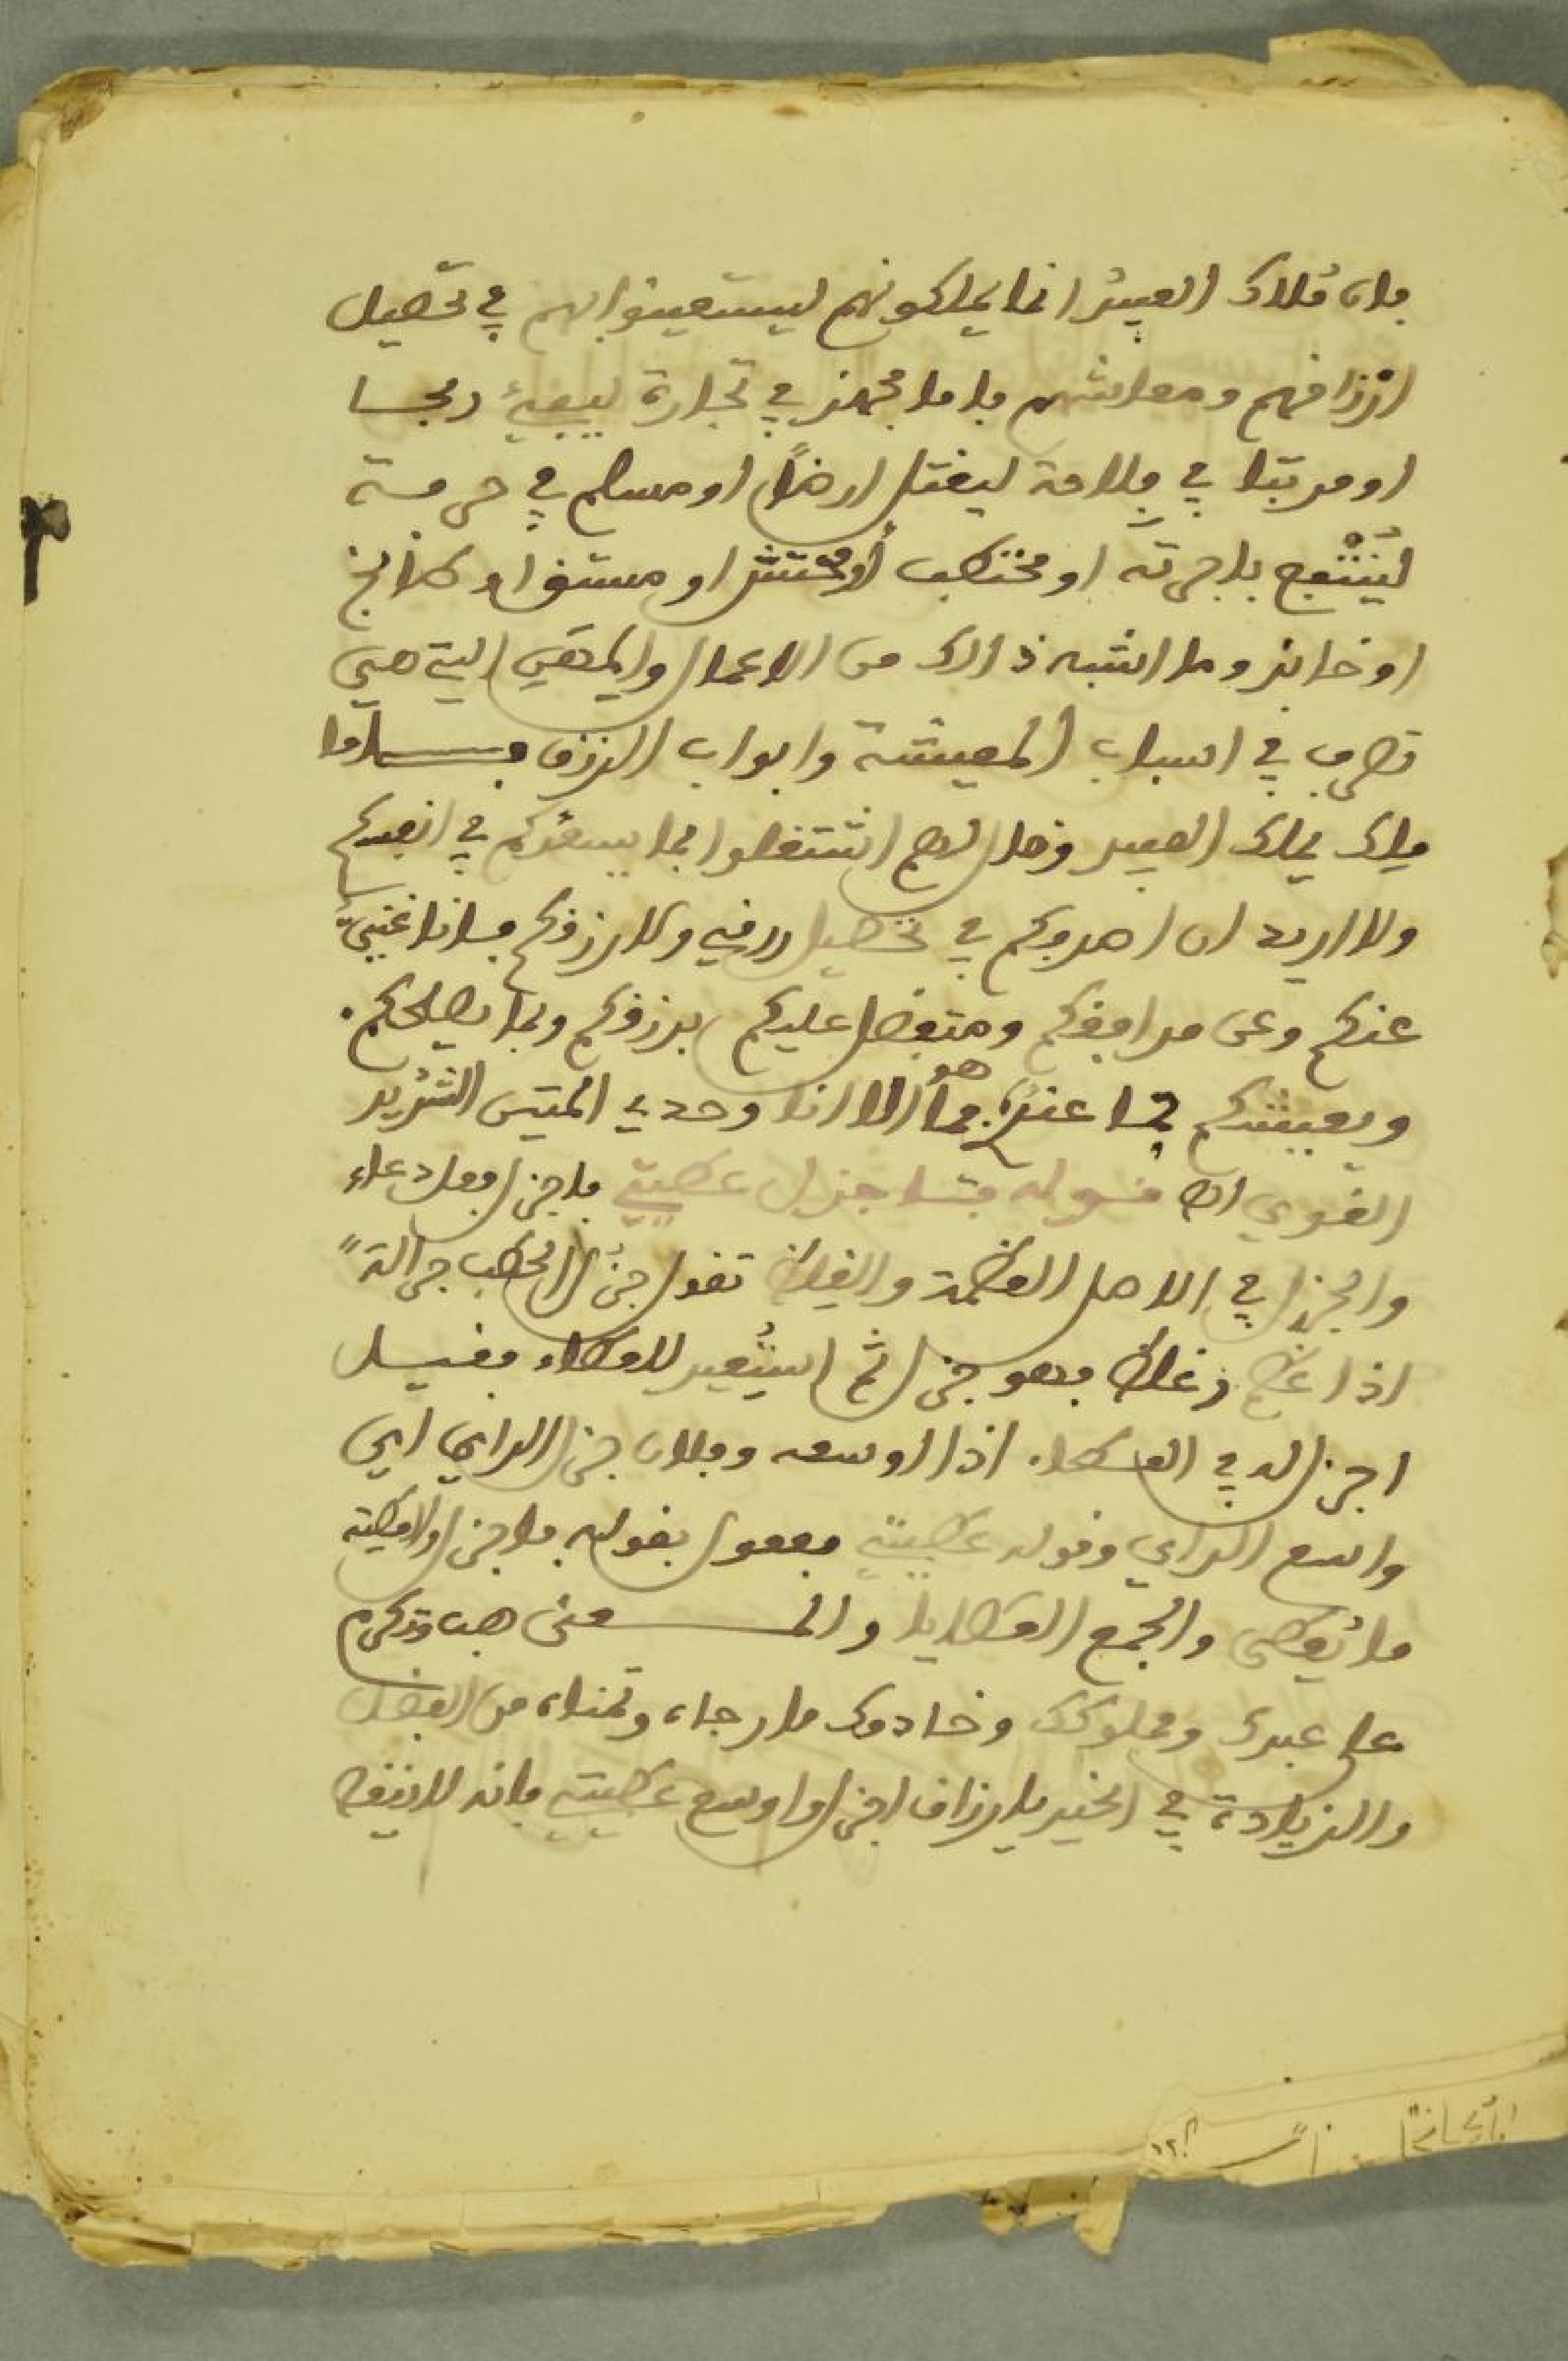 فان ملاك العبيد انما يملكونهم ليستعينوا بهم في تحصيل
ارزاقهم ومعايشهم فاما مجهز في تجارة ليبغي ربحا
او مرتبا في فلاحة ليغتل ارضا او مسلم في حرفة
لينتفع باجرته او محتطب او محتش او مستق او طابخ
او خابز وما اشبه ذالك من الاعمال والمهن التي هي
تصرف في اسباب المعيشة وابواب الرزق فاما
ملك يملك العبيد وقال لهم اشتغلوا بما يسعدكم في انفسكم
ولا اريد ان اصرفكم في تحصيل رزقي ولا رزقكم فانا غني
عنكم وعن مرافقكم ومتفضل عليكم برزقكم وبما يصلحكم
ويعيشكم من عندي فما هو الا انا وحدي المتين الشديد
القوي اه قوله فاجزل عطيتي فاجزل فعل دعاء
والجزل في الاصل العظمة والغلظ تقول جزل الحطب جزالة
اذا عظم وغلظ فهو جزل ثم استعير للعطاء فقيل
اجزل له في العطاء اذا اوسعه وفلان جزل الراي اي
واسع الراي وقوله عطيتي مفعول بقوله فاجزل والعطية
ما يعطى والجمع العطايا والمعنى هب وتكرم
على عبدك ومملوكك وخادمك ما رجاه وتمناه من الفضل
والزيادة في الخير يارزاق اجزل واوسع عطيته فانه لا ينقص